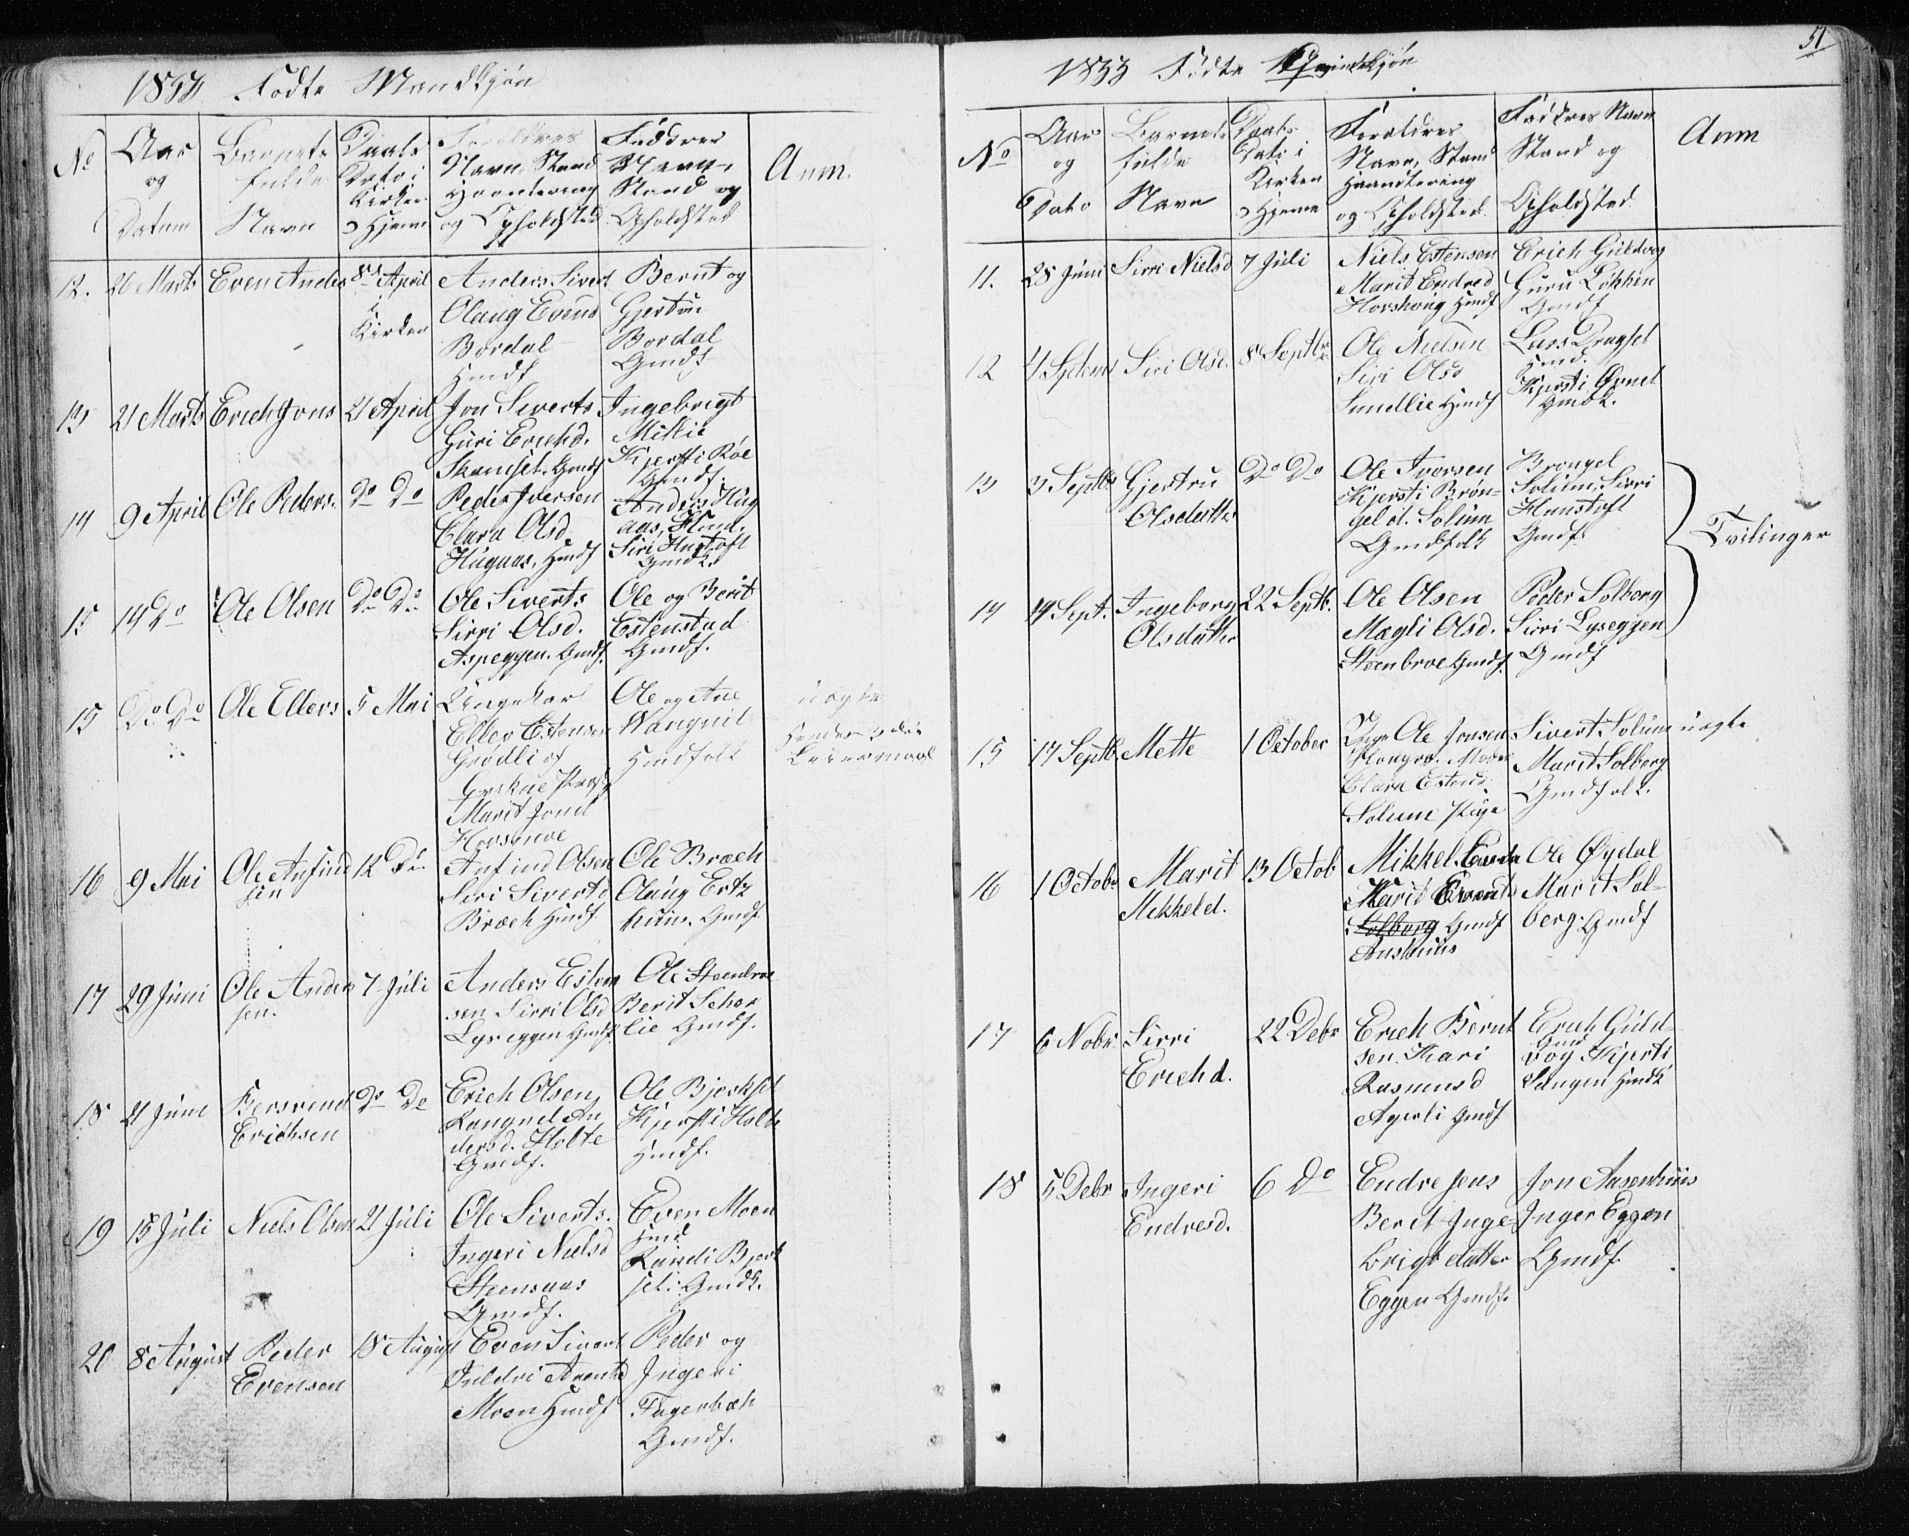 1833 Fødte Mandkjøn
No
Aar
og
Datum
Barnets
fulde
Navn
Daabs
Dato i
Kirken
Hjemme
Forældres
Navn, Stand
Haandtering
og Opholdsted
Faddres
Navn,
Stand og
Opholdsted
Anm.
12. 26 Marts Even Anders 8de April
i
Kirken
Anders Sivert
Olaug Evens
Bordal
Gmdf
Bernt og
Gjertru
Bordal
Gmdf
13 21 Marts Erich Jons 21 April
Jon Siverts
Guri Erichd.
Skamset. Gmdf
Ingebrigt
Kjersti Röe
Gmdf.
14 9 April Ole Peders. Do Do
Peder Iversen
Clara Olsd.
Hugaas. Gmdf
Anders Hug
aas, Gmd.
Siri Hustoft
Gmdk.
15 14 Do Ole Olsen Do Do
Ole Siverts
Sirri Olsd.
Aspeggen. Gmdf.
Ole og Berit
Estenstad
Gmdf.
15 Do Do Ole Ellers 5 Mai
Ungekar
Eller Estensen
Grødli og
Marit Jonsd
Ole og Ane
Wangnil
Gmdfolk
uægte
Hendes
Leiermaal
16 9 Mai Ole Anfind
sen
12 Do
Anfind Olsen
Siri Sivertsd
Bræch Gmdf
Ole Bræch
Olaug Ertz
huus. Gmdf
17 29 Juni Ole Anders
sen.
7 Juli
Anders Esten
sen Sirri Olsd
Lyseggen Gmdf
Ole Steenbroe
Berit Schar
lie Gmdf.
18 21 Juni
Erichsen
Do Do
Erich Olsen,
Rangnel An
dersd. Holte
Gmdf.
Ole Bjerkset
Kjersti Holte
Gmdf.
19 15 Juli Niels Olsen 21 Juli
Ole Siverts.
Ingeri Nielsd
Steensaas
Gmdf.
Even Moen
Gmd
Randi Bjerk
set. Gmdk.
20 8 August Peder
Evensen
18 August
Even Sivert
Moen Gmdf
Peder og
Ingeri
Fagerbæk
Gmdf.
51
1833 Fødte Qvindekjøn
No
Aar
og
Dato
Barnets
fulde
Navn
Daabs
Dato i
Kirken
Hjemme
Forældres
Navn, Stand
Haandtering
og Opholdsted.
Faddres Navn
Stand og
Opholdsted
Anm
11. 28 Juni Sirri Nielsd 7 Juli
Niels Estensen
Marit Endresd
Gmdf
Erich Guldvog
Guru Løkken
Gmdf
12 4 Siri Olsd. 8 Septbr
Ole Nielsen
Siri Olsd
Gmdf
Lars Dragset
Gmd.
Kjersti
Gmdk.
13 3 Septbr Gjertru
Olsdatter
Do Do
Ole Iversen
Kjersti Brøn-
geld. Solum
Gmdfolk
Brøngel
Solum, Sirri
Hunstoft
Gmdf.
Tvilinger
14 14 Sept. Ingeborg
Olsdatter
22 Septb.
Ole Olsen
Magli Olsd.
Steenbroe Gmdf
Peder Solberg
Sirri Lyseggen
Gmdf
15 17 Septb. Mette 1 October
Ole Jonsen
Clara Estensd.
Solum Pige
Sivert Solum
Marit Solberg
Gmdfolk.
uægte
16 1 Octobr Marit
Mikkeld.
13 Octob
Mikkel
Marit Evens
Solberg Gmdf
Aushuus
Ole Øydal
Marit Sol-
berg. Gmdf
17 6 Nobr Sirri
Erichd.
22 Debr
Erich Bernt
sen. Kari
Rasmusd
Agerli Gmdf
Erich Guld-
Gmd
vog Kjersti
Langen Gmdk
18 5 Debr Ingeri
Endresd.
6 Do
Endre Jens
Berit Inge-
brigtdatter
Eggen Gmdf.
Jon Aasenhuus
Inger Eggen
Gmdf